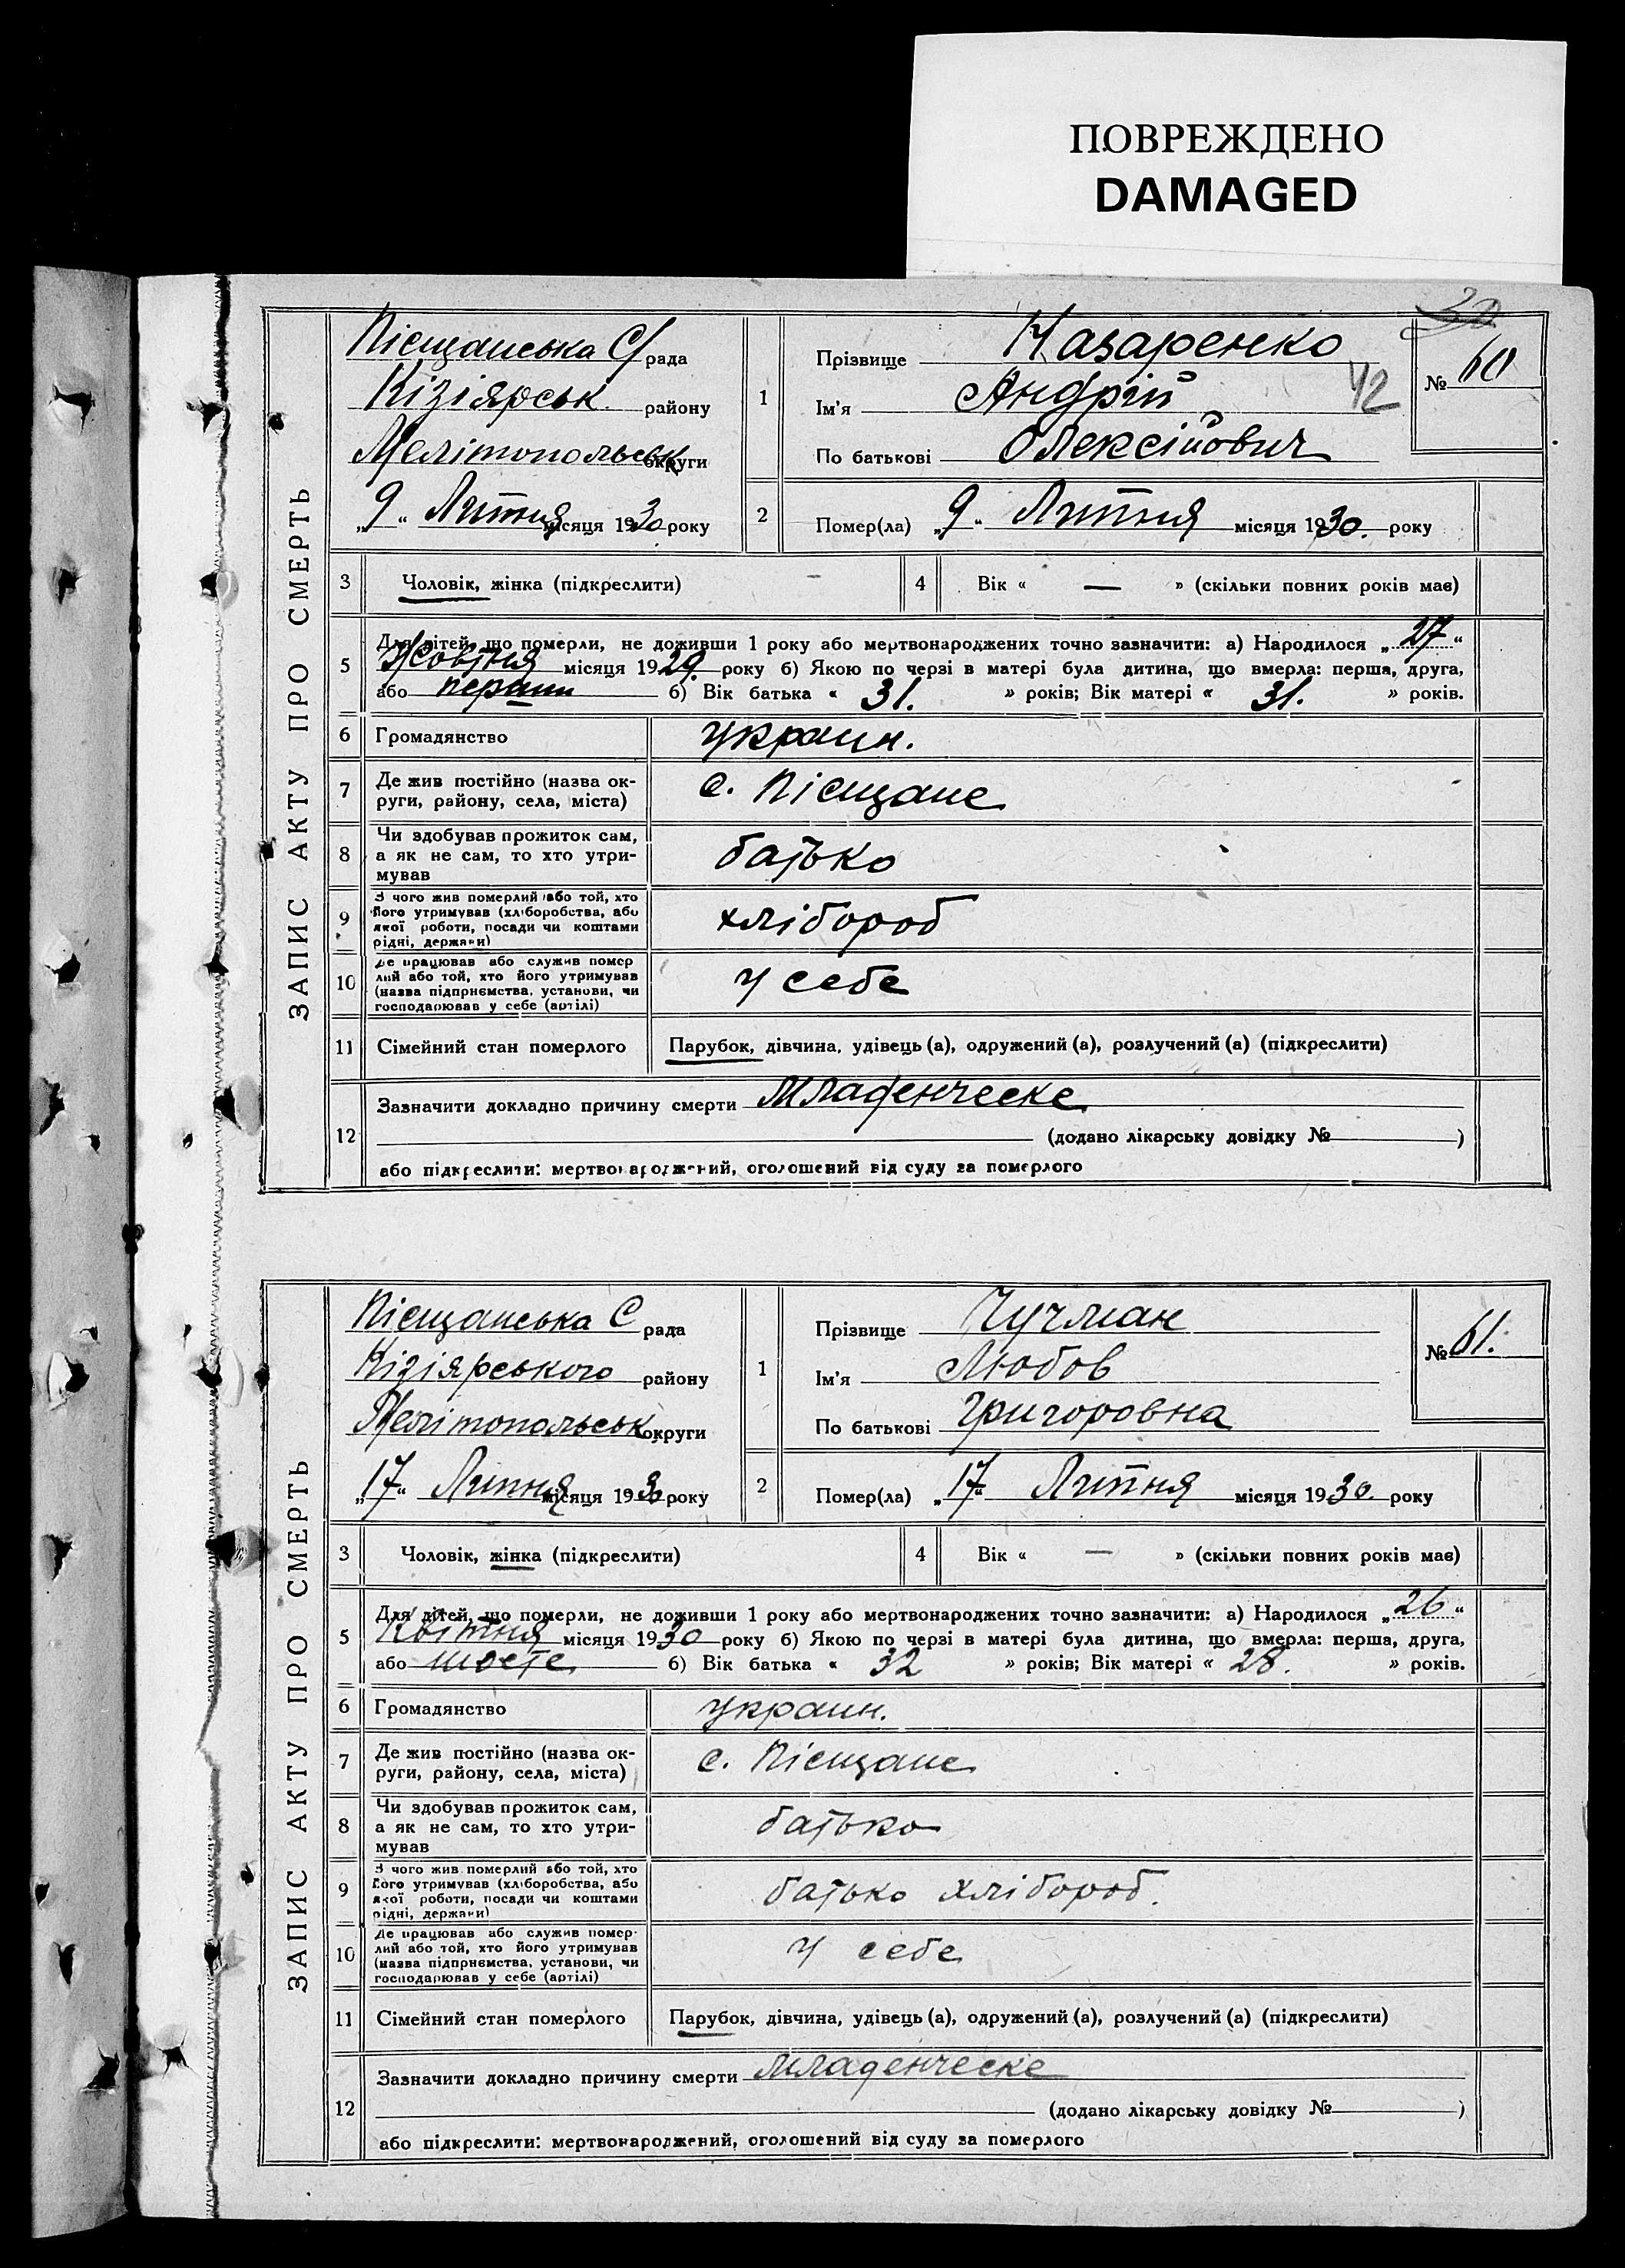 ПОВРЕЖДЕНО
DAMAGED
ЗАПИС АКТУ ПРО СМЕРТЬ
30
Пісщанська С/рада
Кізіярськ. району
Мелітопольськ округи
„9“ Литня місяця 1930 року
1
Прізвище Назаренко
Ім'я Андрій
42
По батькові Олексійович
№ 60
2
Помер(ла) „9“ Литпня місяця 1930. року
3 Чоловік, жінка (підкреслити)
4 Вік « — » (скільки повних років має)
5 Для дітей, що померли, не доживши 1 року або мертвонароджених точно зазначити: а) Народилося „27“
Жовтня місяця 1929. року б) Якою по черзі в матері була дитина, що вмерла: перша, друга,
або перший б) Вік батька « 31. » років; Вік матері « 31. » років.
6 Громадянство украин.
7 Де жив постійно (назва ок-
руги, району, села, міста) с. Пісщане
8 Чи здобував прожиток сам,
а як не сам, то хто утри-
мував батько
9 З чого жив померлий або той, хто
його утримував (хліборобства, або
якої роботи, посади чи коштами
рідні, держави) хлібороб
10 Де працював або служив помер
лий або той, хто його утримував
(назва підприємства, установи, чи
господарював у себе (артілі) у себе
11 Сімейний стан померлого Парубок, дівчина, удівець (а), одружений (а), розлучений (а) (підкреслити)
12 Зазначити докладно причину смерти Младенческе
(додано лікарську довідку № )
або підкреслити: мертвонароджений, оголошений від суду за померлого
ЗАПИС АКТУ ПРО СМЕРТЬ
Пісщанська С рада
Кізіярського району
Мелітопольськ округи
„17“ Липня місяця 1930 року
1
Прізвище Чучман
Ім'я Любов
По батькові Григоровна
№ 61.
2
Помер(ла) „17“ Литпня місяця 1930. року
3 Чоловік, жінка (підкреслити)
4 Вік « — » (скільки повних років має)
5 Для дітей, що померли, не доживши 1 року або мертвонароджених точно зазначити: а) Народилося „26“
Квітня місяця 1930 року б) Якою по черзі в матері була дитина, що вмерла: перша, друга,
або шосте б) Вік батька « 32 » років; Вік матері « 28. » років.
6 Громадянство украин.
7 Де жив постійно (назва ок-
руги, району, села, міста) с. Пісщане
8 Чи здобував прожиток сам,
а як не сам, то хто утри-
мував батько
9 З чого жив померлий або той, хто
його утримував (хліборобства, або
якої роботи, посади чи коштами
рідні, держави) батько хлібороб.
10 Де працював або служив помер-
лий або той, хто його утримував
(назва підприємства, установи, чи
господарював у себе (артілі) у себе
11 Сімейний стан померлого Парубок, дівчина, удівець (а), одружений (а), розлучений (а) (підкреслити)
12 Зазначити докладно причину смерти Младенческе
(додано лікарську довідку № )
або підкреслити: мертвонароджений, оголошений від суду за померлого